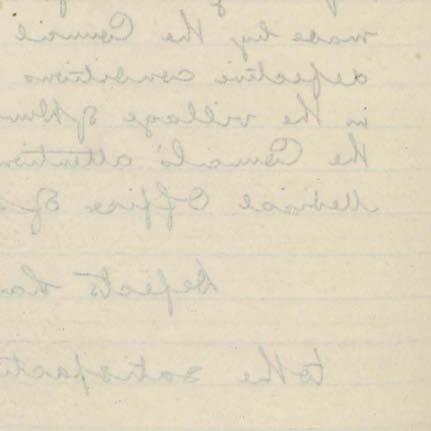 made by the Council
defective conditions
in the village of
the Council's attention
Medical Officer of
Defects ha
to the satisfacti